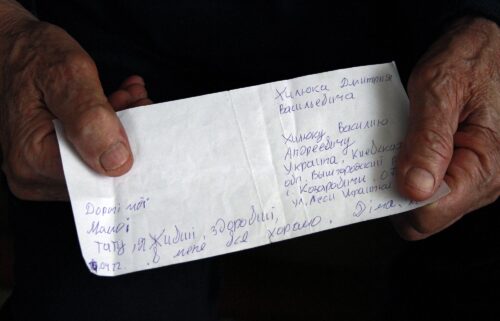 Хилюка Дмитрия
Васильевича
Хилюку Василию
Андреевичу
Украина, Киевская
обл. Вышгородский р
с. Козаровичи,
ул. Леси
Дорогі мої
Мамо і
тату, я живий, здоровий,
в мене все хорошо. Діма.
.04.22